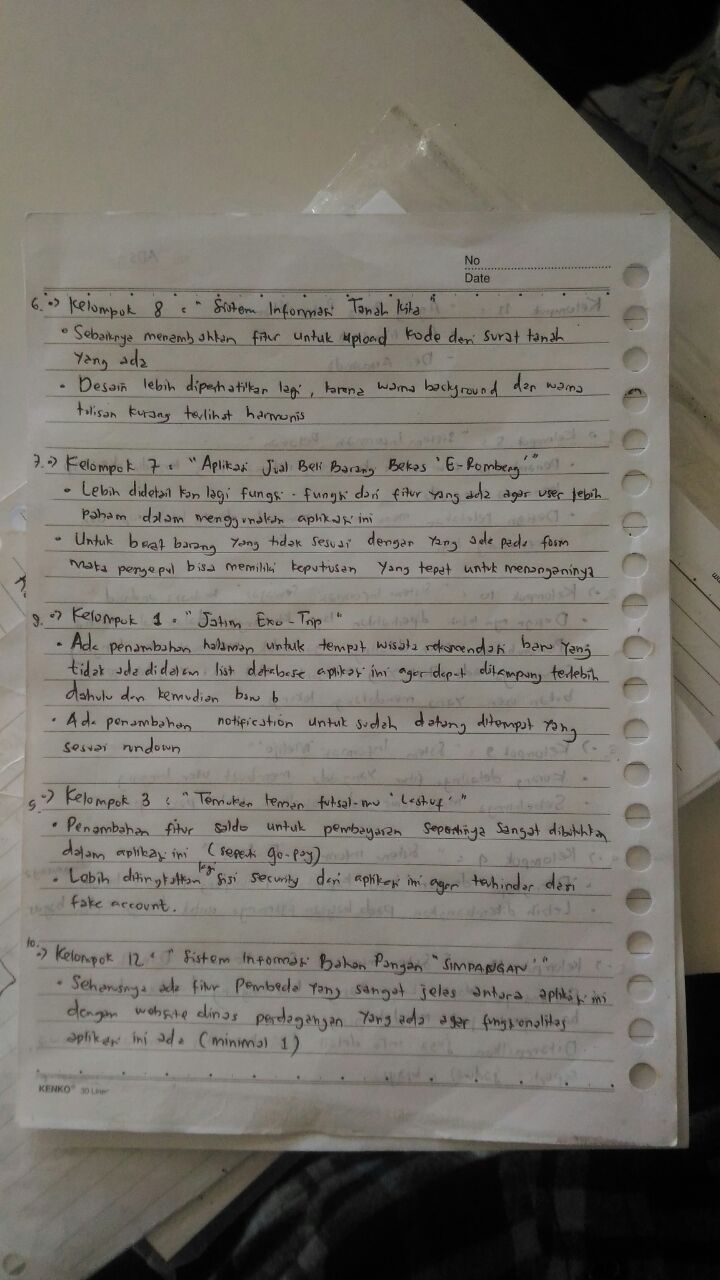 No
Date
6. => Kelompok 8 : " Sistem Informasi Tanah Kita "
• Sebaiknya menambahkan fitur untuk upload kode dari surat tanah
yang ada
• Desain lebih diperhatikan lagi, karena warna background dan warna
tulisan kurang terlihat harmonis
7. => Kelompok 7 : " Aplikasi Jual Beli Barang Bekas ' E-Rombeng ' "
• Lebih didetailkan lagi fungsi - fungsi dari fitur yang ada agar user lebih
paham dalam menggunakan aplikasi ini
• Untuk berat barang yang tidak sesuai dengan yang ada pada form
maka pengepul bisa memiliki keputusan yang tepat untuk menanganinya
8. => Kelompok 1 : " Jatim Exo - Trip "
• Ada penambahan halaman untuk tempat wisata rekomendasi baru yang
tidak ada didalam list database aplikasi ini agar dapat ditampung terlebih
dahulu dan kemudian baru b
• Ada penambahan notification untuk sudah datang ditempat yang
sesuai rundown
9. => Kelompok 3 : " Temukan teman futsal-mu ' ' "
• Penambahan fitur saldo untuk pembayaran sepertinya sangat dibutuhkan
dalam aplikasi ini (seperti go-pay)
• Lebih ditingkatkan lagi sisi security dari aplikasi ini agar terhindar dari
fake account.
10. => Kelompok 12 : " Sistem Informasi Bahan Pangan "SIMPANGAN' "
• Seharusnya ada fitur pembeda yang sangat jelas antara aplikasi ini
dengan website dinas perdagangan yang ada agar fungsionalitas
aplikasi ini ada (minimal 1)
KENKO® 30 Lines